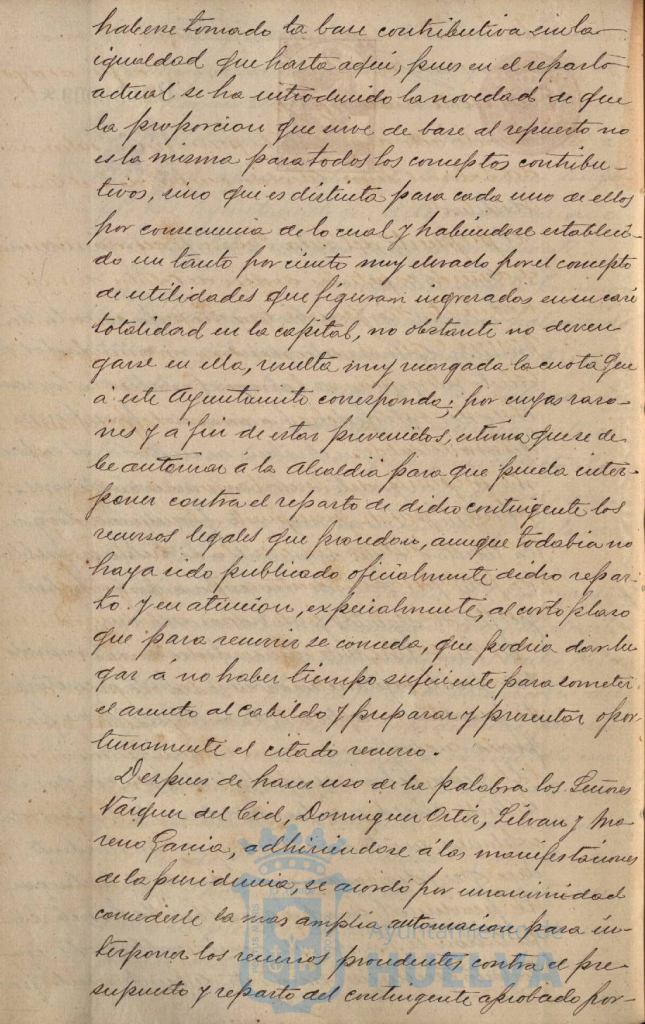 haberse tomado la base contributiva en la
igualdad que hasta aquí, pues en el reparto
actual se ha introducido la novedad de que
la proporcion que sirve de base al repuerto no
es la misma para todos los conceptos contribu-
tivos, sino que es distinta para cada uno de ellos
por consecuencia de lo cual y habiéndose estableci-
do un tanto por ciento muy elevado por el concepto
de utilidades que figuran ingresados en su casi
totalidad en la capital, no obstante no deven
garse en ella, resulta muy recargada la cuota que
á este Ayuntamiento corresponda; por cuyas razo-
nes y á fin de estar prevenidos, estima que se de
be autorizar á la Alcaldia para que pueda inter-
poner contra el reparto de dicho contingente los
recursos legales que procedan, aunque todabia no
haya sido publicado oficialmente dicho repar-
to y en atencion, expecialmente, al corto plazo
que para recurrir se conceda, que podria dar lu
gar á no haber tiempo suficiente para someter
el asunto al Cabildo y preparar y presentar opor-
tunamente el citado recurso.
Despues de hacer uso de la palabra los Señores
Vazquez del Cid, Dominguez Ortiz, Silvan y Mo
reno Garcia, adhiriendose á las manifestaciones
de la presidencia, se acordó por unanimidad
concederle la mas amplia autorizacion para in-
terponer los recursos procedentes contra el pre-
supuesto y reparto del contingente aprobado por
Ayuntamiento de
HUELVA